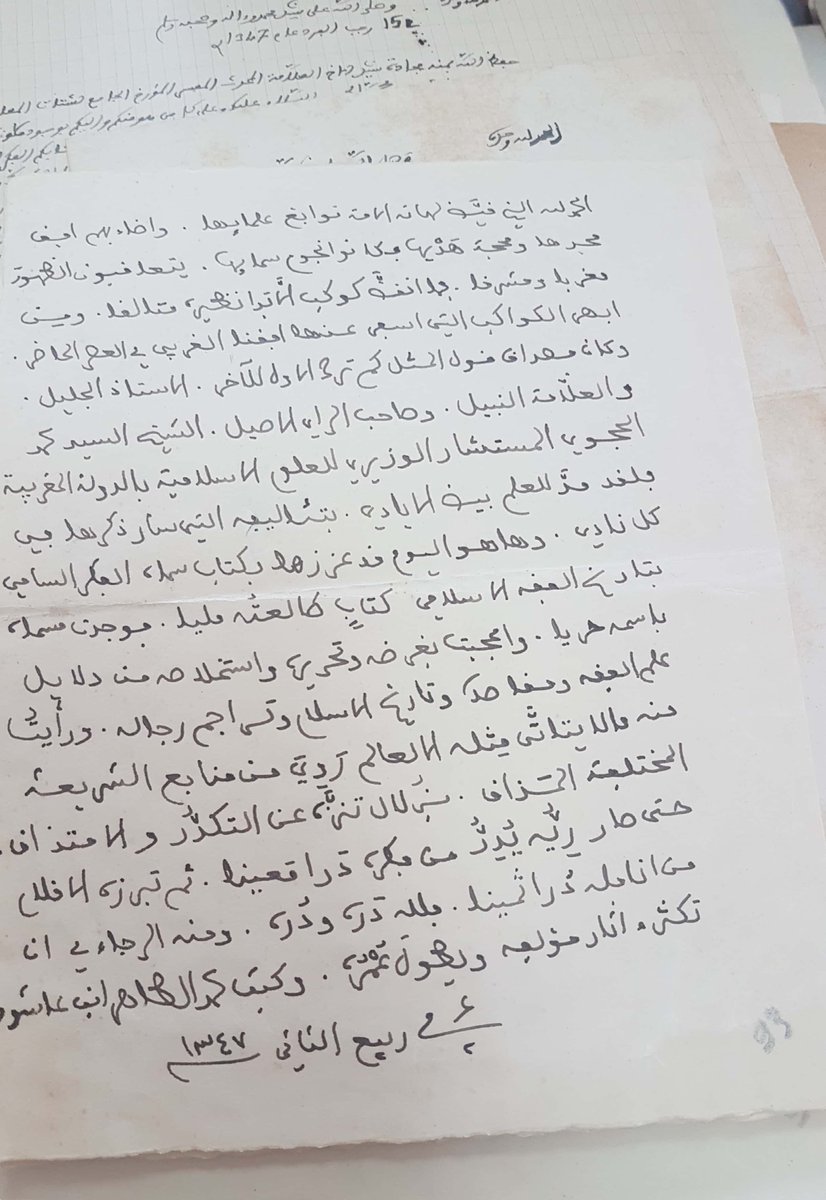 وصلى الله على سيدنا محمد وآله وصحبه وسلم
15 رجب الفرد عام 1347
الحمد لله وحده
الحمد لله الذي قيض لهاته الامة نوابغ علمايها . واضاء بهم افق
مجدها ومحجة هديها فكانوا نجوم سمايها . يتعاقبون الظهور
مغربا ومشرقا . فما انقض كوكب الا توا نظيره متالقا . ومن
ابهى الكواكب التي اسفر عنها افقنا الغربي في العصر الحاضر .
وكان مصداق قول المثل كم ترك الاول للآخر . الاستاذ الجليل .
والعلامة النبيل . وصاحب الراي الاصيل . الشيخ السيد محمد
الحجوي المستشار الوزيري للعلوم الاسلامية بالدولة المغربية
فلقد مد للعلم بيض الايادي . بتئاليفه التي سار ذكرها في
كل نادي . وها هو اليوم قد عززها بكتاب سماه الفكر السامي
بتاريخ الفقه الاسلامي كتاب طالعته مليا . فوجدت مسماه
باسمه حريا . واعجبت بغرضه وتحريره واستخلاصه من دلايل
علم الفقه ومقاصده وتاريخ الاسلام وتراجم رجاله . ورأيت
منه ما لا يتاتى مثله الا لعالم روي من منابع الشريعة
المختلفة المذاق . بزلال تنزه عن التكدر والامتذاق .
حتى صار ريه يدر من فكره درا معينا . ثم تبرزه الاقلام
من انامله درا ثمينا . فلله دره ودره . ومنه الرجاء في ان
تكثر ءاثار مؤلفه ويطول عمره . وكتب محمد الطاهر ابن عاشور
في ٤ ربيع الثاني ١٣٤٧
93